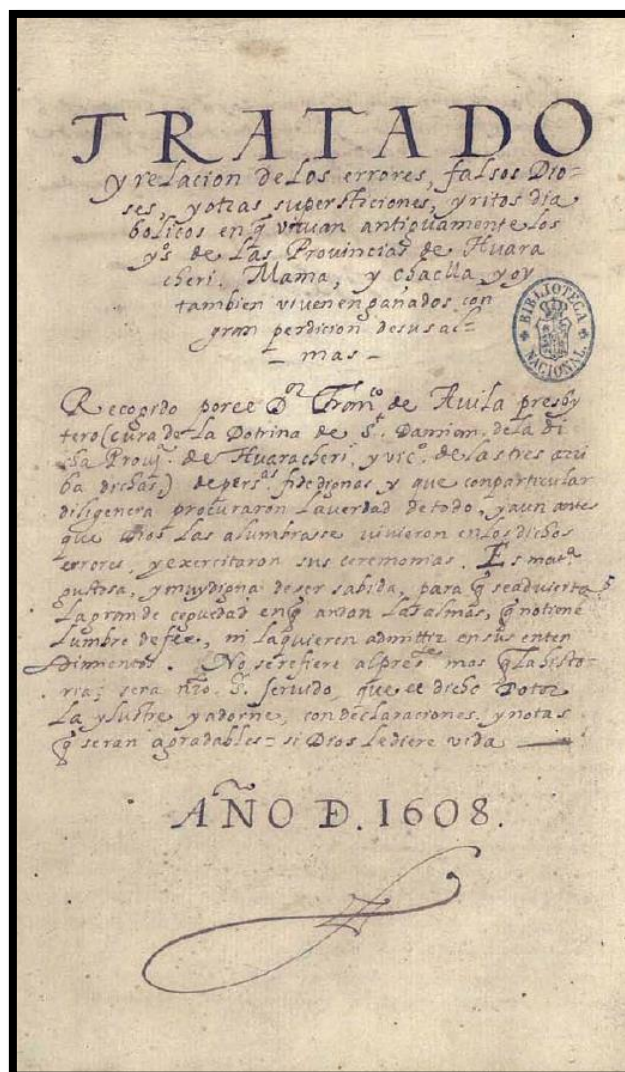 TRATADO
y relacion de los errores, falsos Dio-
ses, y otras supersticiones, y ritos dia
bolicos en q̃ viuian antiguamente los
yº.s de las Prouincias de Huara
cheri. Mama, y chaclla, y oy
tambien viuen engañados con
gran perdicion de sus al-
- mas -
BIBLIOTECA
NACIONAL
Recogido por el D.or Fran.co de Auila presby
tero (cura de la Dotrina de S.t Damian de la di
cha Prouj.a de Huaracheri, y vic.o de las tres arri
ba dichas,) de pers.as fidedignas y que con particular
diligencia procuraron la verdad de todo, y aun antes
que Dios las alumbrasse viuieron en los dichos
errores, y exercitaron sus ceremonias. Es mat.a
gustosa, y muy digna de ser sabida, para q̃ se aduierta
la grande ceguedad en q̃ andan las almas, q̃ no tienẽ
lumbre de fee, ni la quieren admittir en sus enten
dimientos. No se refiere al pres.te mas q̃ la histo-
ria; sera nro. S.r seruido, que el dicho Dotor
la ylustre y adorne, con declaraciones. y notas
q̃ seran agradables - si Dios le diere vida —
AÑO D. 1608.